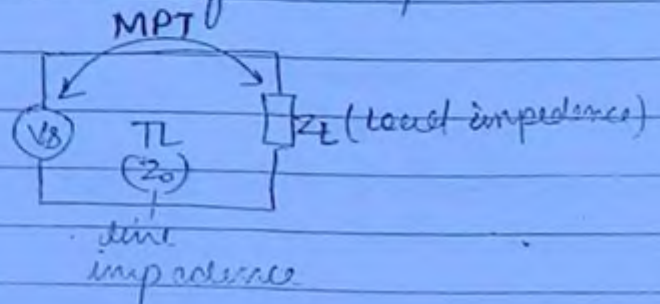 MPT
Vs
TL
(Z₀)
ZL (Load impedence)
line
impedence